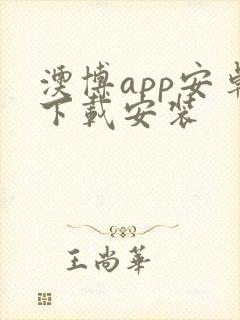 澳博app安卓
下载安装
王尚華